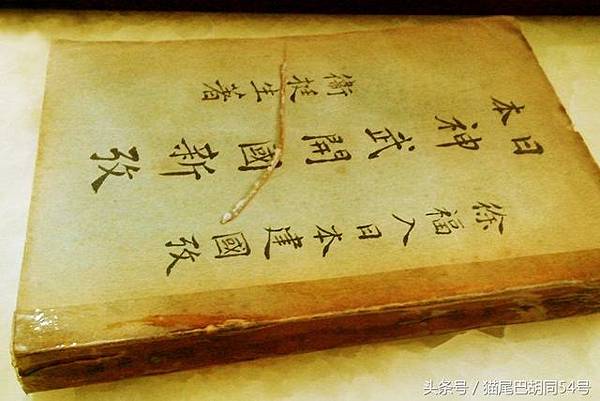 徐福入日本建國攷
日本神武開國新攷
衛挺生著
头条号 / 猫尾巴胡同54号